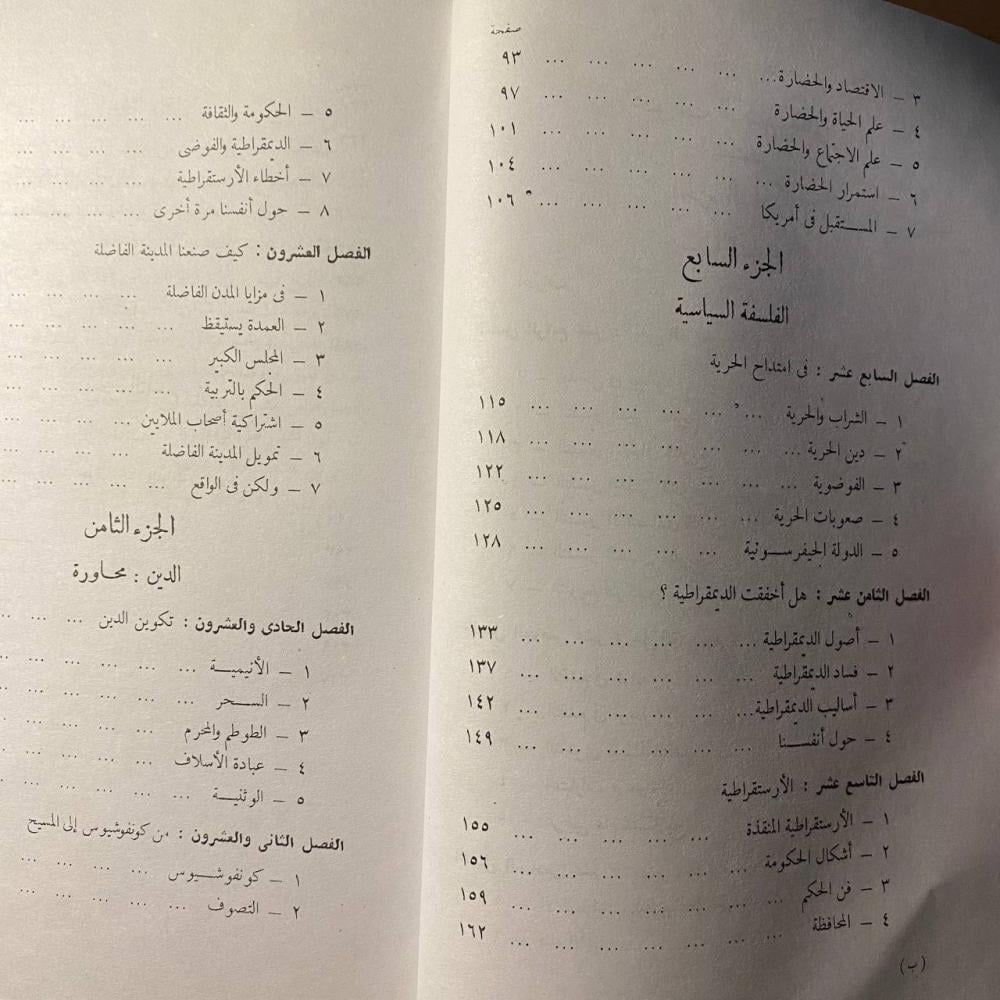 صفحة
٣ – الاقتصاد والحضارة ... ... ... ... ... ... ٩٣
٤ – علم الحياة والحضارة ... ... ... ... ... ٩٧
٥ – علم الاجتماع والحضارة ... ... ... ... ... ١٠١
٦ – استمرار الحضارة ... ... ... ... ... ... ١٠٤
٧ – المستقبل فى أمريكا ... ... ... ... ... ١٠٦
الجزء السابع
الفلسفة السياسية
الفصل السابع عشر : فى امتداح الحرية
١ – الشراب والحرية ... ... ... ... ... ... ١١٥
٢ – دين الحرية ... ... ... ... ... ... ... ١١٨
٣ – الفوضوية ... ... ... ... ... ... ... ١٢٢
٤ – صعوبات الحرية ... ... ... ... ... ... ١٢٥
٥ – الدولة الجيفرسونية ... ... ... ... ... ١٢٨
الفصل الثامن عشر : هل أخفقت الديمقراطية ؟
١ – أصول الديمقراطية ... ... ... ... ... ... ١٣٣
٢ – فساد الديمقراطية ... ... ... ... ... ... ١٣٧
٣ – أساليب الديمقراطية ... ... ... ... ... ... ١٤٢
٤ – حول أنفسنا ... ... ... ... ... ... ١٤٩
الفصل التاسع عشر : الأرستقراطية
١ – الأرستقراطية المنقذة ... ... ... ... ... ١٥٥
٢ – أشكال الحكومة ... ... ... ... ... ... ١٥٦
٣ – فن الحكم ... ... ... ... ... ... ... ١٥٩
٤ – المحافظة ... ... ... ... ... ... ... ١٦٢
(ب)
٥ – الحكومة والثقافة ... ... ... ... ...
٦ – الديمقراطية والفوضى ... ... ... ... ...
٧ – أخطاء الأرستقراطية ... ... ... ... ...
٨ – حول أنفسنا مرة أخرى ... ... ... ... ...
الفصل العشرون : كيف صنعنا المدينة الفاضلة
١ – فى مزايا المدن الفاضلة ... ... ... ... ...
٢ – العمدة يستيقظ ... ... ... ... ... ...
٣ – المجلس الكبير ... ... ... ... ... ...
٤ – الحكم بالتربية ... ... ... ... ... ...
٥ – اشتراكية أصحاب الملايين ... ... ... ...
٦ – تمويل المدينة الفاضلة ... ... ... ... ...
٧ – ولكن فى الواقع ... ... ... ... ... ...
الجزء الثامن
الدين : محاورة
الفصل الحادى والعشرون : تكوين الدين ... ... ...
١ – الأنيمية ... ... ... ... ... ...
٢ – السحر ... ... ... ... ... ...
٣ – الطوطم والمحرم ... ... ... ... ...
٤ – عبادة الأسلاف ... ... ... ... ...
٥ – الوثنية ... ... ... ... ... ...
الفصل الثانى والعشرون : من كونفوشيوس إلى المسيح
١ – كونفوشيوس ... ... ... ... ...
٢ – التصوف ... ... ... ... ...